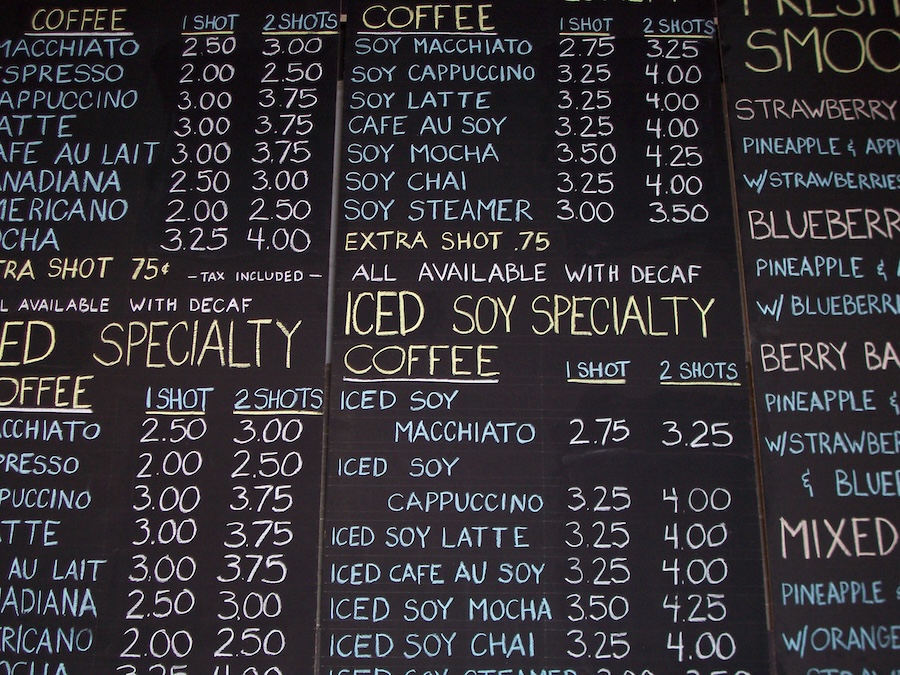 COFFEE 1 SHOT 2 SHOTS
MACCHIATO 2.50 3.00
ESPRESSO 2.00 2.50
CAPPUCCINO 3.00 3.75
ATTE 3.00 3.75
AFE AU LAIT 3.00 3.75
ANADIANA 2.50 3.00
MERICANO 2.00 2.50
OCHA 3.25 4.00
TRA SHOT 75¢ - TAX INCLUDED -
L AVAILABLE WITH DECAF
ED SPECIALTY
OFFEE 1 SHOT 2 SHOTS
CCHIATO 2.50 3.00
PRESSO 2.00 2.50
PUCCINO 3.00 3.75
TTE 3.00 3.75
AU LAIT 3.00 3.75
ADIANA 2.50 3.00
ERICANO 2.00 2.50
OCHA 3.25 4.00
COFFEE 1 SHOT 2 SHOTS
SOY MACCHIATO 2.75 3.25
SOY CAPPUCCINO 3.25 4.00
SOY LATTE 3.25 4.00
CAFE AU SOY 3.25 4.00
SOY MOCHA 3.50 4.25
SOY CHAI 3.25 4.00
SOY STEAMER 3.00 3.50
EXTRA SHOT .75
ALL AVAILABLE WITH DECAF
ICED SOY SPECIALTY
COFFEE 1 SHOT 2 SHOTS
ICED SOY
MACCHIATO 2.75 3.25
ICED SOY
CAPPUCCINO 3.25 4.00
ICED SOY LATTE 3.25 4.00
ICED CAFE AU SOY 3.25 4.00
ICED SOY MOCHA 3.50 4.25
ICED SOY CHAI 3.25 4.00
ICED SOY STEAMER
FRESH
SMOO
STRAWBERRY
PINEAPPLE & APP
W/STRAWBERRIES
BLUEBERR
PINEAPPLE &
W/ BLUEBERRI
BERRY BA
PINEAPPLE &
W/STRAWBER
& BLUE
MIXED
PINEAPPLE
W/ORANGE
STRAW